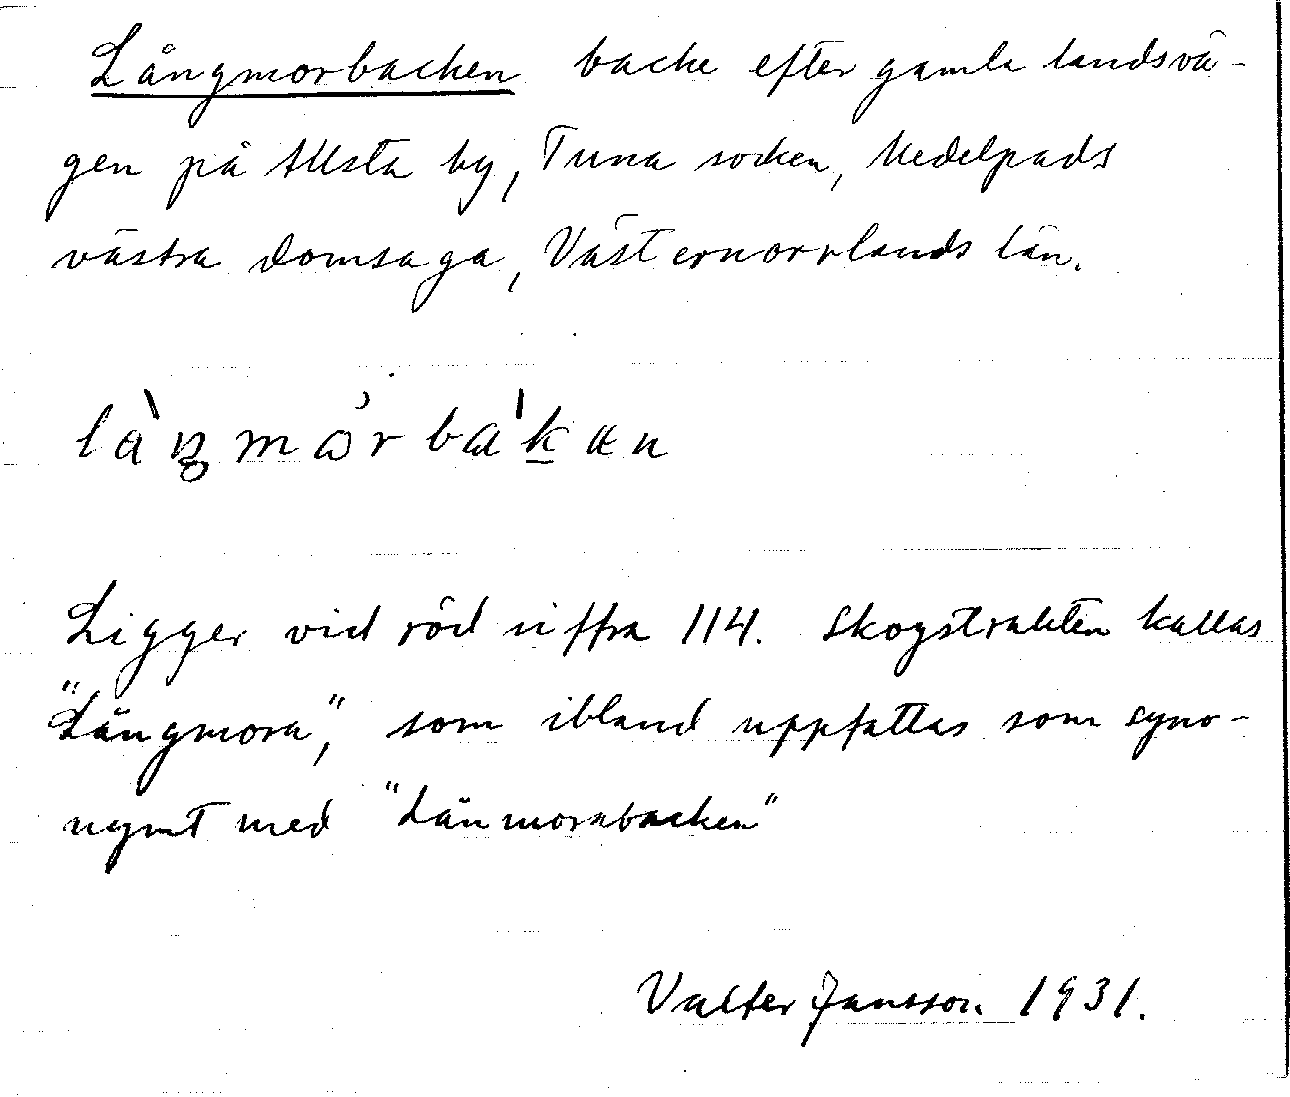 Långmorbacken backe efter gamla landsvä-
gen på Allsta by, Tuna socken, Medelpads
västra domsaga, Västernorrlands län.
Ligger vid röd siffra 114. Skogstrakten kallas
"Långmora", som ibland uppfattas som syno-
nymt med "Långmorabacken"
Valter Jansson 1931.